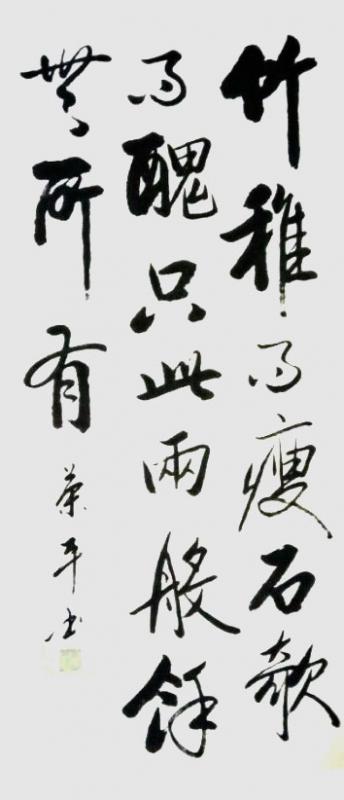 竹稚而瘦石欹
而醜只此兩般餘
無所有
平书